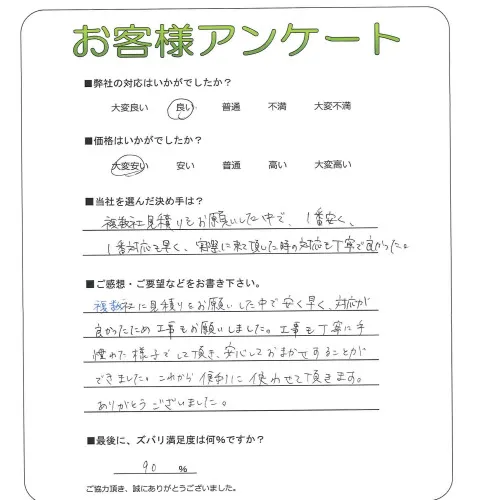 お客様アンケート
■弊社の対応はいかがでしたか？
大変良い 良い 普通 不満 大変不満
■価格はいかがでしたか？
大変安い 安い 普通 高い 大変高い
■当社を選んだ決め手は？
複数社見積りをお願いした中で、1番安く、
1番対応も早く、実際に来て頂した時の対応も丁寧で良かった。
■ご感想・ご要望などをお書き下さい。
複数社に見積りをお願いした中で安く早く、対応が
良かったため工事もお願いしました。工事も丁寧に手
慣れた様子でして頂き、安心しておまかせすることが
できました。これから便利に使わせて頂きます。
ありがとうございました。
■最後に、ズバリ満足度は何%ですか？
90 %
ご協力頂き、誠にありがとうございました。